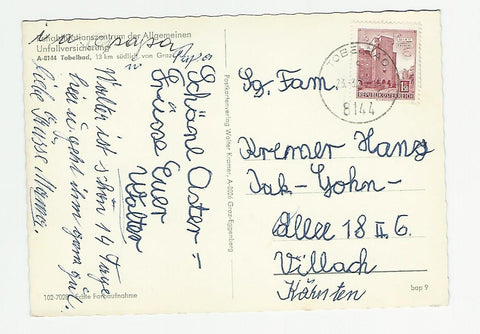 Rehabilitationszentrum der Allgemeinen
Unfallversicherung
A-8144 Tobelbad, 13 km südlich von Graz
Schöne Oster-
Grüsse Euer
Walter
Walter ist schon 14 Tage
hier u. geht ihm ganz gut.
liebe Grüsse Mama
u. Papa
102-7028 Echte Farbaufnahme
Postkartenverlag Walter Kramer, A-8026 Graz-Eggenberg
TOBELBAD
8144
REPUBLIK ÖSTERREICH
Sg. Fam.
Kremer Hans
Jak-Ghon-
Allee 18 II. 6.
Villach
Kärnten
bap 9